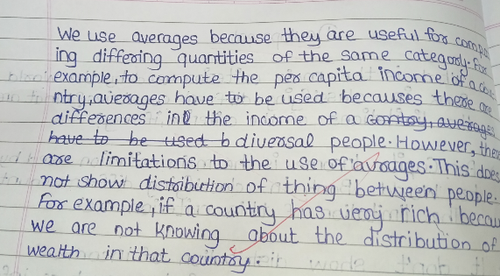 We use averages because they are useful for compar
ing differing quantities of the same category. For
example, to compute the per capita income of a cou
ntry, averages have to be used becauses there are
differences in the income of a contry, averages
have to be used b diversal people. However, there
are limitations to the use of avrages. This does
not show distribution of thing between people.
For example, if a country has very rich becau
we are not knowing about the distribution of
wealth in that country.